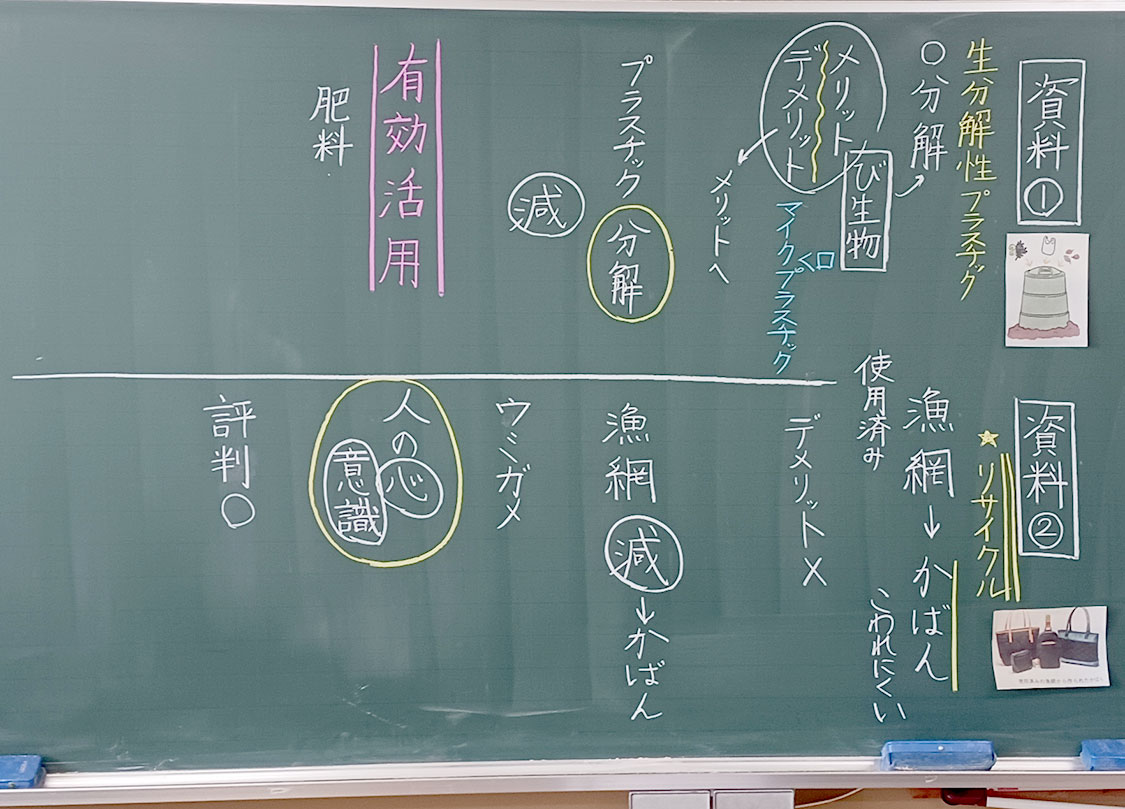 資料①
生分解性プラスチック
〇分解
び生物
メリット
デメリット
マイクロプラスチック
メリットへ
プラスチック分解
減
有効活用
肥料
資料②
★リサイクル
漁網→かばん
使用済み
こわれにくい
デメリット×
漁網減→かばん
ウミガメ
人の心
意識
評判〇